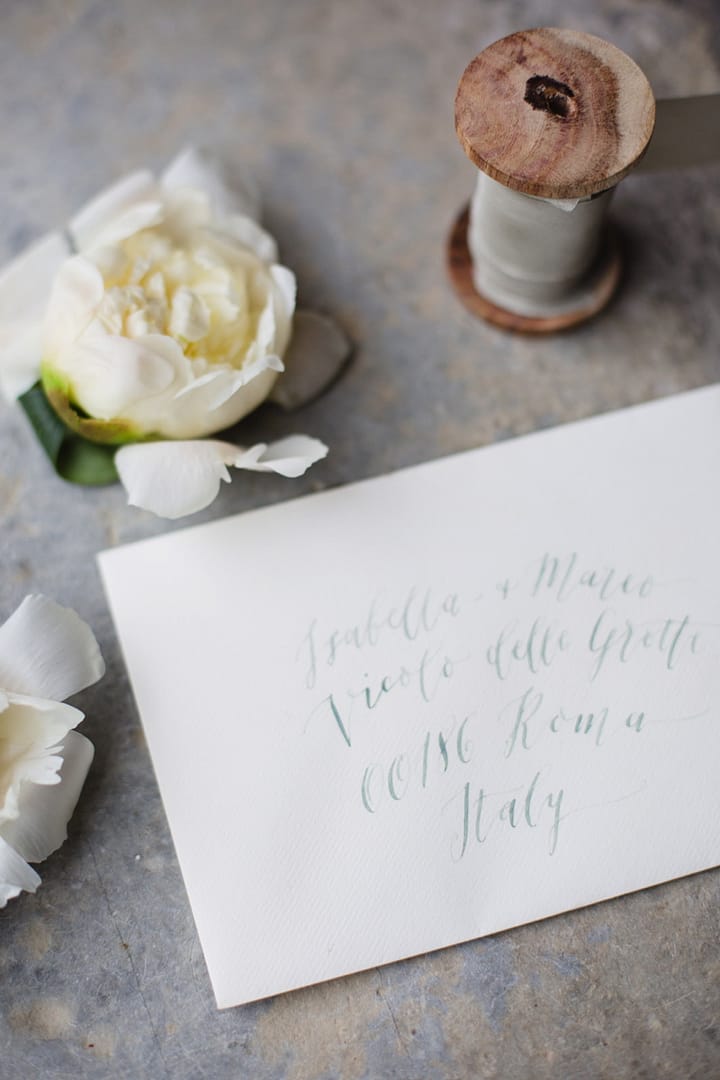 Isabella + Marco
Vicolo delle Grotte
00186 Roma
Italy